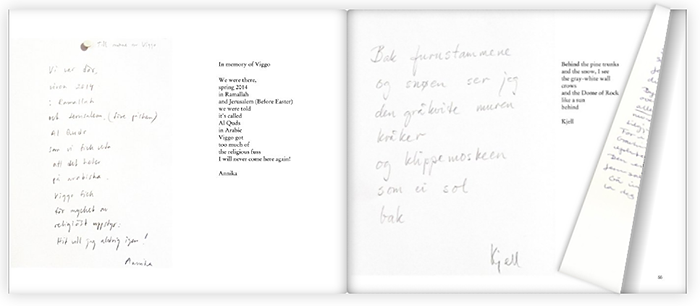 Till minne av Viggo
Vi var där,
våren 2014
i Ramallah
och Jerusalem (före påsken)
Al Quds
som vi fick veta
att det heter
på arabiska.
Viggo fick
för mycket av
religiöst uppstyr.
Hit vill jag aldrig igen!
Annika
In memory of Viggo
We were there,
spring 2014
in Ramallah
and Jerusalem (Before Easter)
we were told
it's called
Al Quds
in Arabic
Viggo got
too much of
the religious fuss
I will never come here again!
Annika
Bak furustammene
og snøen ser jeg
den gråkvite muren
kråker
og klippemoskeen
som ei sol
bak
Kjell
Behind the pine trunks
and the snow, I see
the gray-white wall
crows
and the Dome of Rock
like a sun
behind
Kjell